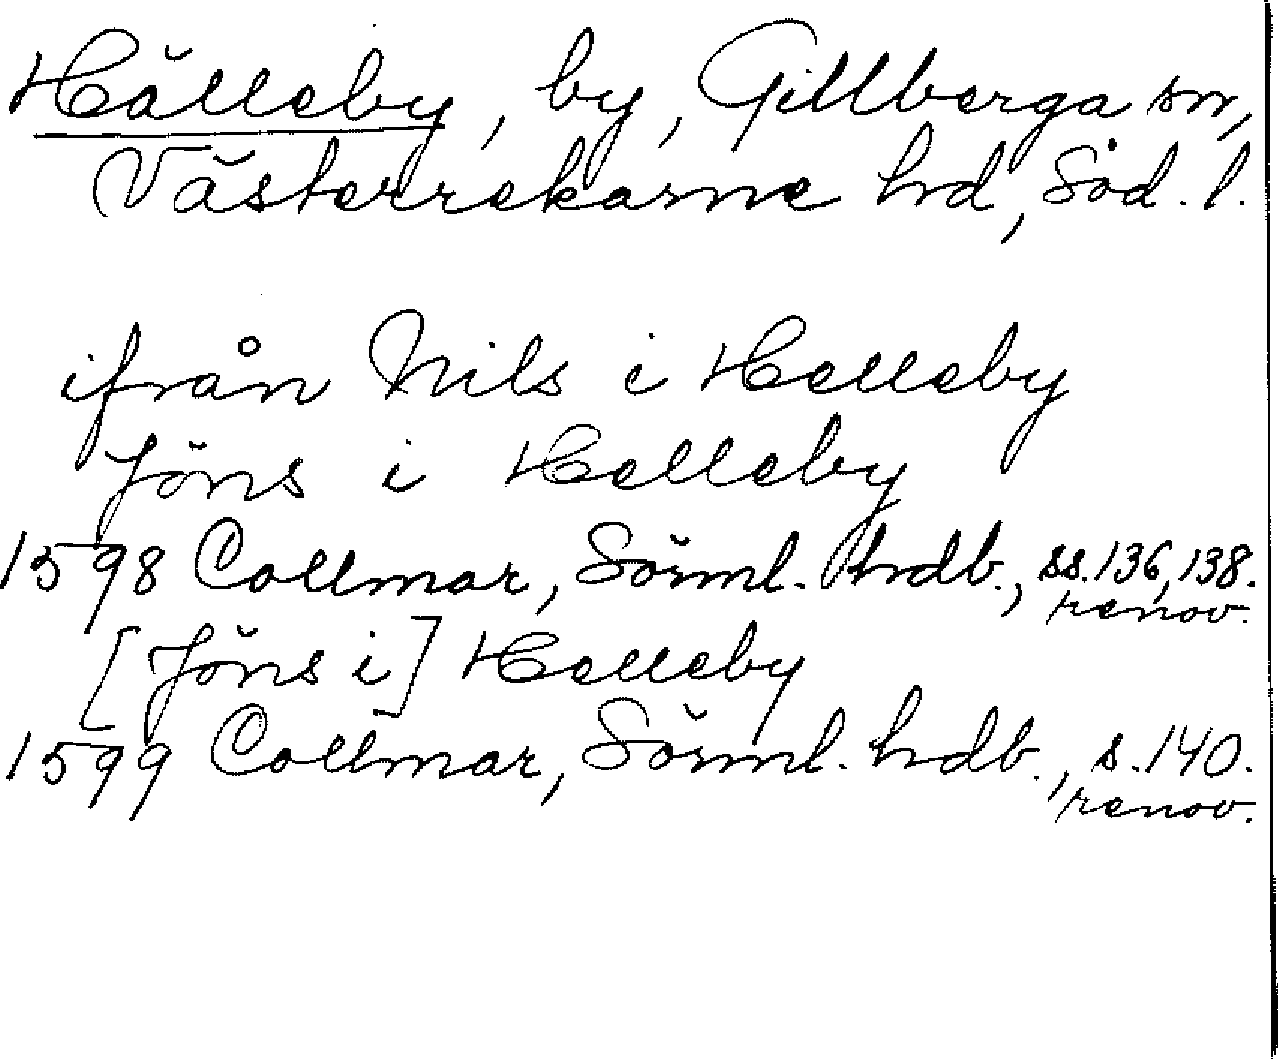 Hälleby, by, Gillberga sn,
Västerrekarne hd, Söd. l.
ifrån Nils i Helleby
Jöns i Helleby
1598 Collmar, Sörml. hdb., ss. 136, 138.
renov.
[Jöns i] Helleby
1599 Collmar, Sörml. hdb., s. 140.
renov.